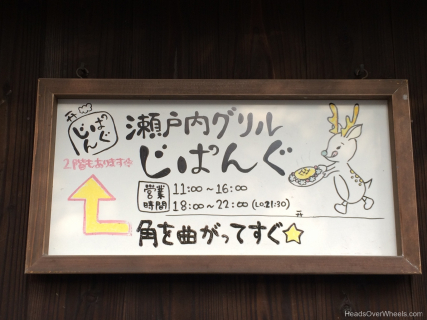 じぱんぐ
2階もあります
瀬戸内グリル
じぱんぐ
営業時間
11:00～16:00
18:00～22:00 (LO.21:30)
角を曲がってすぐ☆
HeadsOverWheels.com